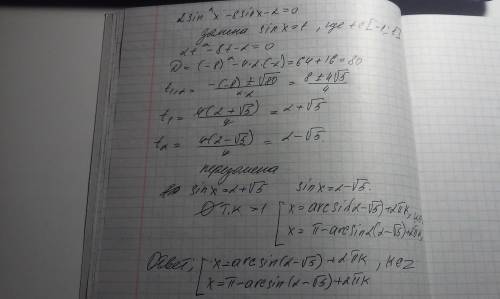 2sin²x-8sinx-2=0
замена sinx=t, где t∈[-1;1]
2t²-8t-2=0
D=(-8)²-4·2·(-2)=64+16=80
t₁,₂= (-(-8)±√80)/(2·2) = (8±4√5)/4
t₁= 4(2+√5)/4 = 2+√5
t₂= 4(2-√5)/4 = 2-√5
перезамена
sinx=2+√5 sinx=2-√5.
∅ т.к >1 [ x=arcsin(2-√5)+2πk,
x=π-arcsin(2-√5)+2πk,
Ответ: [ x=arcsin(2-√5)+2πk , k∈Z
x=π-arcsin(2-√5)+2πk